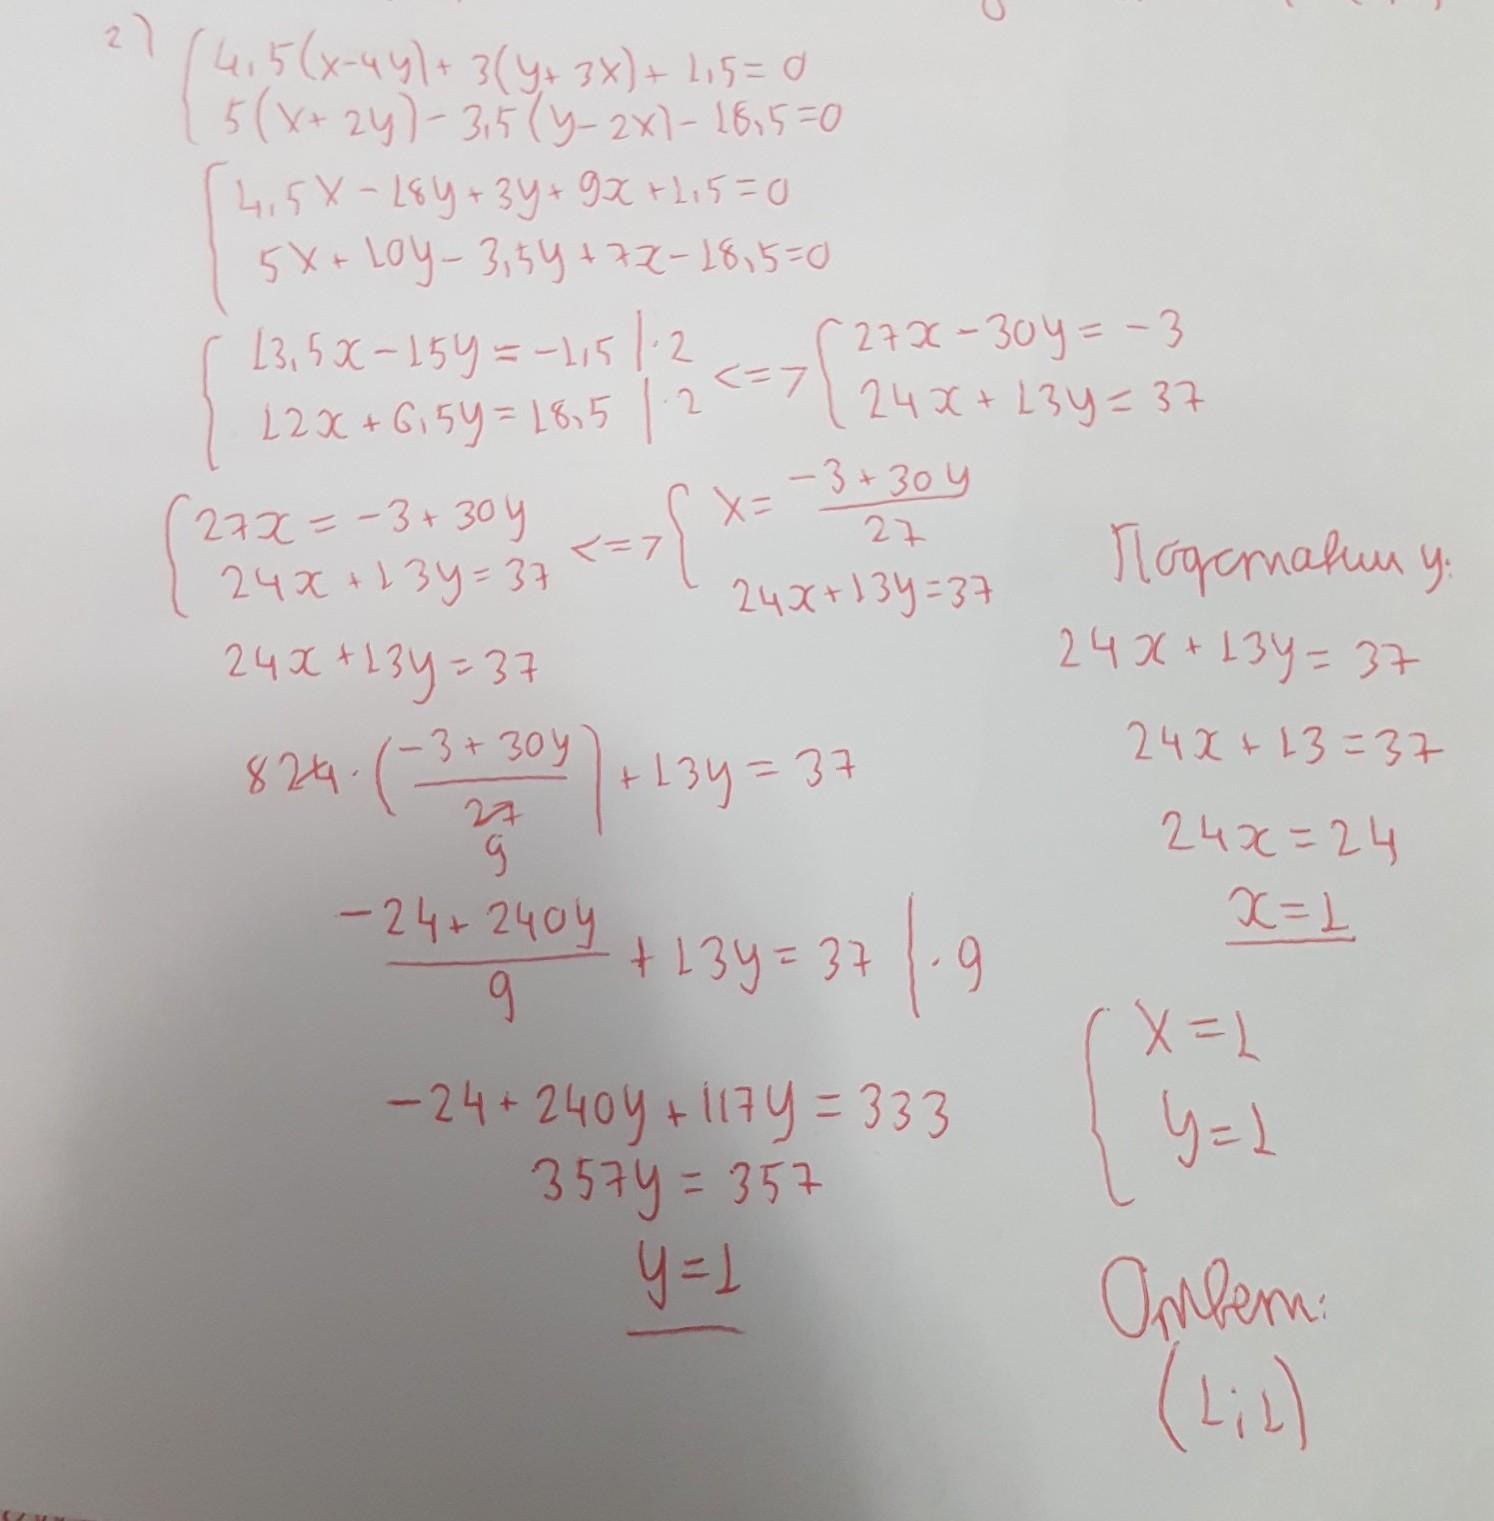 2)
4,5(x-4y)+3(y+3x)+1,5=0
5(x+2y)-3,5(y-2x)-18,5=0
4,5x-18y+3y+9x+1,5=0
5x+10y-3,5y+7x-18,5=0
13,5x-15y=-1,5 |·2 <=> 27x-30y=-3
12x+6,5y=18,5 |·2 24x+13y=37
27x=-3+30y <=> x=(-3+30y)/27
24x+13y=37 24x+13y=37
24x+13y=37
8 24·((-3+30y)/27 9)+13y=37
(-24+240y)/9+13y=37 |·9
-24+240y+117y=333
357y=357
y=1
Подставим y:
24x+13y=37
24x+13=37
24x=24
x=1
x=1
y=1
Ответ:
(1;1)